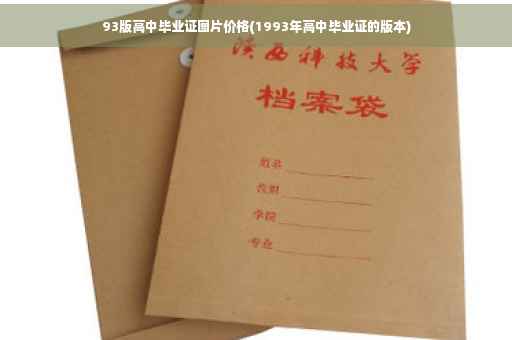 93版高中毕业证图片价格(1993年高中毕业证的版本)
陕西科技大学
档案袋
姓名
学院
专业